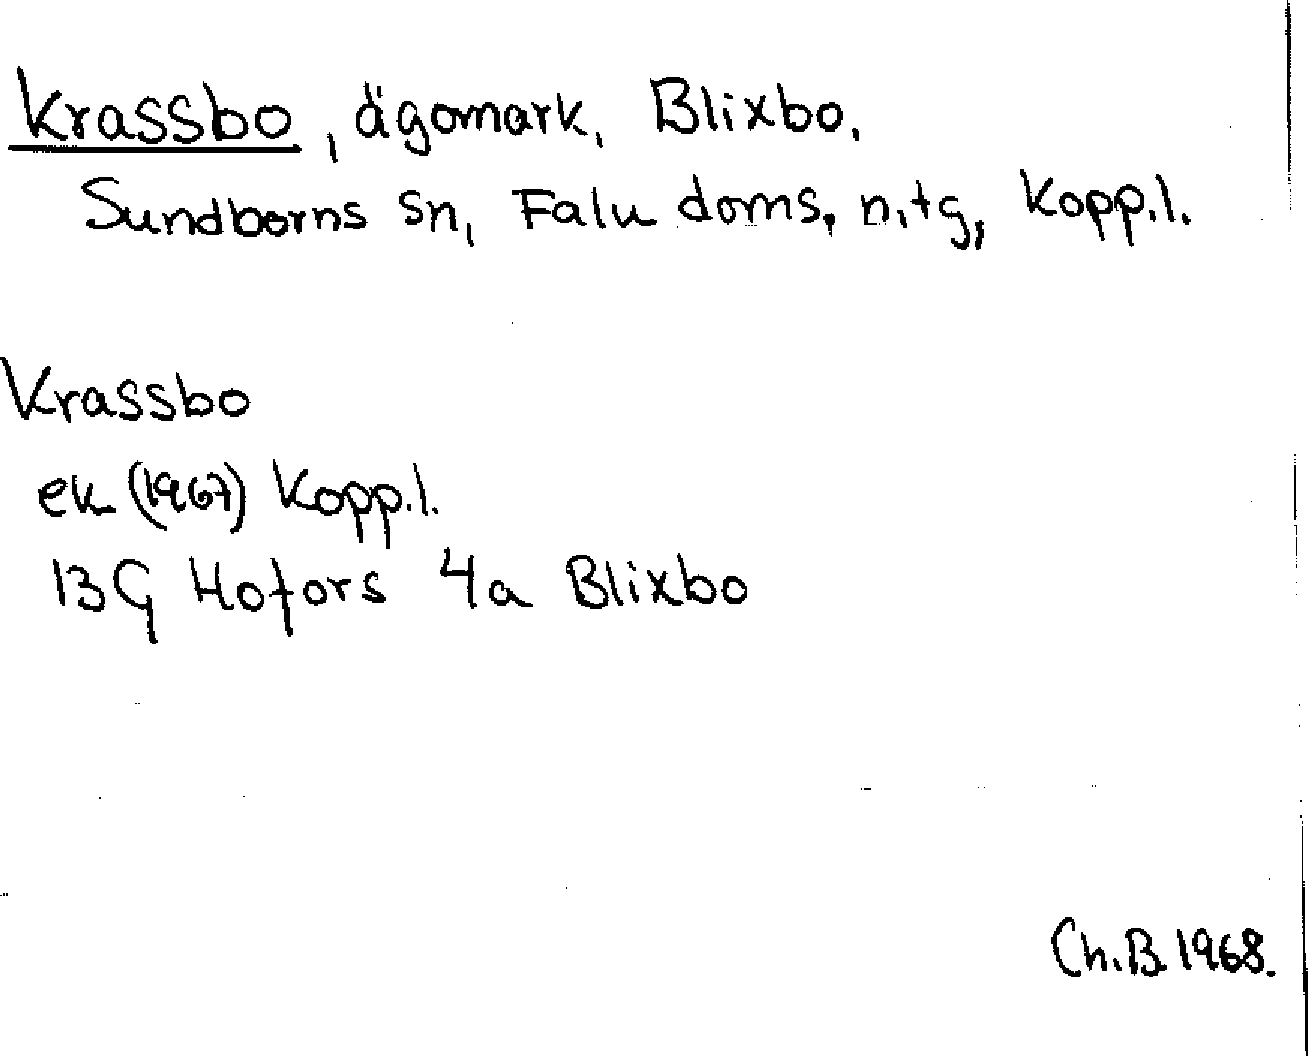 Krassbo, ägomark, Blixbo,
Sundborns sn, Falu doms, n.tg, Kopp.l.
Krassbo
ek (1967) Kopp.l.
13G Hofors 4a Blixbo
Ch.B. 1968.